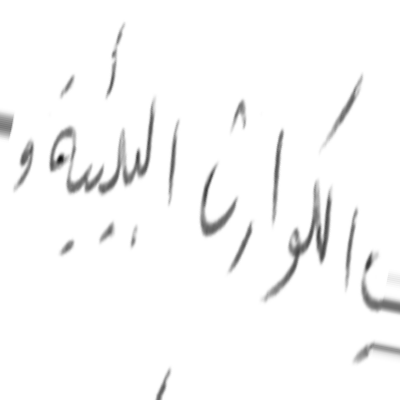 الكوارث البيئية و